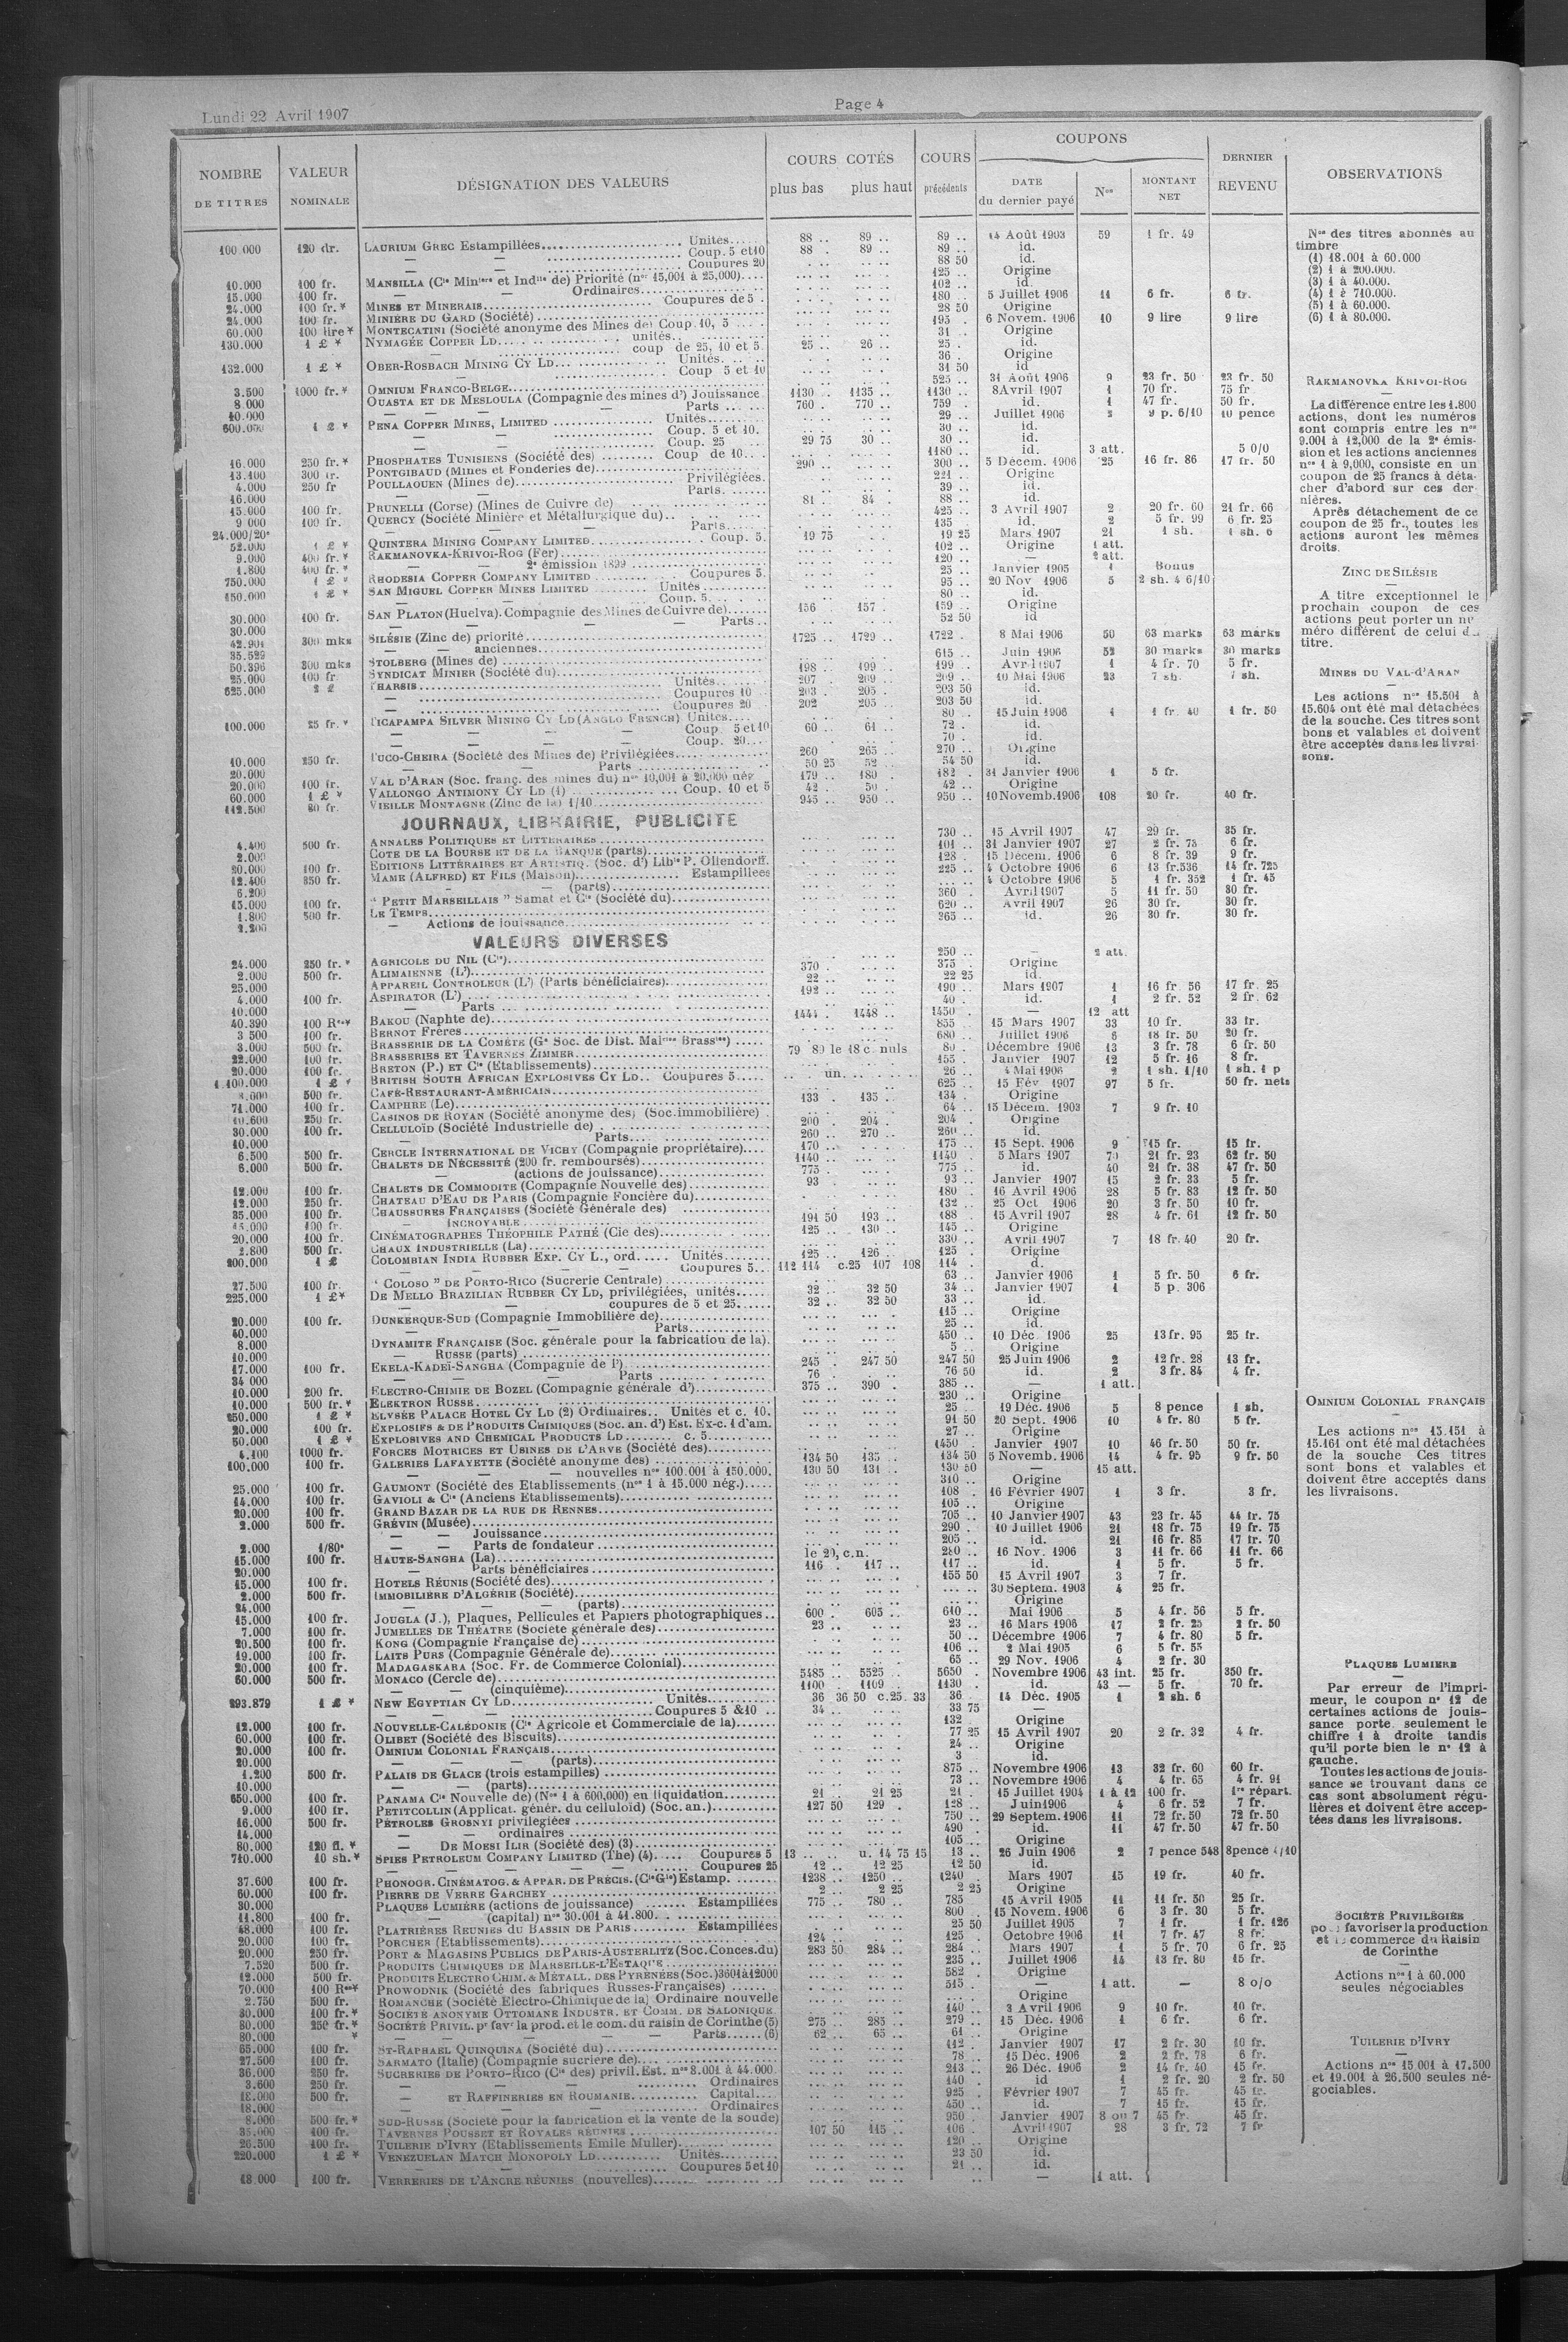 Lundi 22 Avril 1907
Page 4
NOMBRE DE TITRES
VALEUR NOMINALE
DÉSIGNATION DES VALEURS
COURS COTÉS
plus bas plus haut
COURS précédents
COUPONS
DATE du dernier payé
Nos
MONTANT NET
DERNIER REVENU
OBSERVATIONS
100 000 120 dr. LAURIUM GREC Estampillées Unités 88 .. 89 .. 89 .. 14 Août 1903 59 1 fr. 49
— — Coup. 5 et 10 88 . 89 .. 89 .. id.
— — Coupures 20 88 50 id.
10.000 100 fr. MANSILLA (Cie Minière et Indlle de) Priorité (nos 15,001 à 25,000) 125 .. Origine
15.000 100 fr. — — Ordinaires 102 .. id.
24.000 100 fr.* MINES ET MINERAIS Coupures de 5 180 5 Juillet 1906 11 6 fr. 6 fr.
24.000 100 fr. MINIÈRE DU GARD (Société) 28 50 Origine
60.000 100 lire* MONTECATINI (Société anonyme des Mines de) Coup. 10, 5 195 . 6 Novem. 1906 10 9 lire 9 lire
130.000 1 £ * NYMAGÉE COPPER LD unités 31 . Origine
— coup de 25, 10 et 5 25 .. 26 .. 25 . id.
132.000 1 £ * OBER-ROSBACH MINING CY LD Unités 36 . Origine
— Coup 5 et 10 31 50 id
3.500 1000 fr.* OMNIUM FRANCO-BELGE 525 .. 31 Août 1906 9 23 fr. 50 23 fr. 50
8 000 OUASTA ET DE MESLOULA (Compagnie des mines d') Jouissance 1130 .. 1135 .. 1130 .. 8 Avril 1907 1 70 fr. 75 fr.
10.000 — — — Parts 760 . 770 .. 759 .. id. 1 47 fr. 50 fr.
600.000 1 £ * PENA COPPER MINES, LIMITED Unités 29 .. Juillet 1906 2 9 p. 6/10 10 pence
— — Coup. 5 et 10. 30 .. id.
— — Coup. 25 29 75 30 .. 30 .. id.
16.000 250 fr.* PHOSPHATES TUNISIENS (Société des) Coup de 10 1180 .. id. 3 att. 5 0/0
13.100 300 fr. PONTGIBAUD (Mines et Fonderies de) 290 .. 300 .. 5 Décem. 1906 25 16 fr. 86 17 fr. 50
4.000 250 fr POULLAOUEN (Mines de) Privilégiées 221 .. Origine
16.000 — Parts 39 .. id.
15.000 100 fr. PRUNELLI (Corse) (Mines de Cuivre de) 81 . 84 . 88 .. id.
9 000 100 fr. QUERCY (Société Minière et Métallurgique du) 425 .. 3 Avril 1907 2 20 fr. 60 21 fr. 66
24.000/20e — — Parts 135 . id. 2 5 fr. 99 6 fr. 25
52.000 1 £ * QUINTERA MINING COMPANY LIMITED Coup. 5. 19 75 19 25 Mars 1907 21 1 sh. 1 sh. 6
9.000 400 fr.* RAKMANOVKA-KRIVOI-ROG (Fer) 102 .. Origine 1 att.
1.800 400 fr.* — — 2e émission 1899 120 .. — 2 att.
750.000 1 £ * RHODESIA COPPER COMPANY LIMITED Coupures 5. 25 .. Janvier 1905 1 Bonus
150.000 1 £ * SAN MIGUEL COPPER MINES LIMITED Unités 95 .. 20 Nov 1906 5 2 sh. 4 6/10
— Coup. 5. 80 .. id.
30.000 100 fr. SAN PLATON (Huelva). Compagnie des Mines de Cuivre de) 156 157 . 159 .. Origine
30.000 — — — Parts 52 50 id
42.901 300 mks SILÉSIE (Zinc de) priorité 1725 .. 1729 .. 1722 . 8 Mai 1906 50 63 marks 63 marks
35.529 — — anciennes 615 .. Juin 1906 52 30 marks 30 marks
50.396 300 mks STOLBERG (Mines de) 198 .. 199 .. 199 .. Avril 1907 1 4 fr. 70 5 fr.
25.000 100 fr SYNDICAT MINIER (Société du) 207 . 209 .. 209 .. 10 Mai 1906 23 7 sh. 7 sh.
625.000 2 £ THARSIS Unités 203 . 205 . 203 50 id.
— Coupures 10 202 205 . 203 50 id.
— Coupures 20
100.000 25 fr.* TICAPAMPA SILVER MINING CY LD (ANGLO FRENCH) Unités 80 .. 15 Juin 1906 1 1 fr. 40 1 fr. 50
— — — Coup. 5 et 10 60 .. 61 .. 72 . id.
— — — Coup. 20 70 . id.
10.000 250 fr. TUCO-CHEIRA (Société des Mines de) Privilégiées 260 265 .. 270 .. Origine
20.000 — Parts 50 25 52 . 54 50 id.
20.000 100 fr. VAL D'ARAN (Soc. franç. des mines du) nos 10,001 à 20.000 nég 179 .. 180 . 182 . 31 Janvier 1906 1 5 fr.
60.000 1 £ * VALLONGO ANTIMONY CY LD (1) Coup. 10 et 5 42 . 50 . 42 .. Origine
112.500 80 fr. VIEILLE MONTAGNE (Zinc de la) 1/10 945 .. 950 .. 950 .. 10 Novemb. 1906 108 20 fr. 40 fr.
JOURNAUX, LIBRAIRIE, PUBLICITE
4.400 500 fr. ANNALES POLITIQUES ET LITTÉRAIRES 730 .. 15 Avril 1907 47 29 fr. 35 fr.
2.000 COTE DE LA BOURSE ET DE LA BANQUE (parts) 101 .. 31 Janvier 1907 27 2 fr. 75 6 fr.
20.000 100 fr. EDITIONS LITTÉRAIRES ET ARTISTIQ. (Soc. d') Libie P. Ollendorff. 128 . 15 Décem. 1906 6 8 fr. 39 9 fr.
12.400 350 fr. MAME (ALFRED) ET FILS (Maison) Estampillées 225 .. 4 Octobre 1906 6 13 fr.536 14 fr. 725
6.200 — — (parts) 4 Octobre 1906 5 1 fr. 352 1 fr. 45
15.000 100 fr. “ PETIT MARSEILLAIS ” Samat et Cie (Société du) 360 . Avril 1907 5 11 fr. 50 30 fr.
1.800 500 fr. LE TEMPS 620 .. Avril 1907 26 30 fr. 30 fr.
2.200 — Actions de jouissance 365 .. id. 26 30 fr. 30 fr.
VALEURS DIVERSES
24.000 250 fr.* AGRICOLE DU NIL (Cie) 250 .. — 2 att.
2.000 500 fr. ALIMAIENNE (L') 370 . 375 . Origine
25.000 APPAREIL CONTROLEUR (L') (Parts bénéficiaires) 22 .. 22 25 id.
4.000 100 fr. ASPIRATOR (L') 192 .. 190 .. Mars 1907 1 16 fr 56 17 fr. 25
10.000 — Parts 40 . id. 1 2 fr. 52 2 fr. 62
40.390 100 R* BAKOU (Naphte de) 1444 . 1448 .. 1450 . — 12 att
3 500 100 fr. BERNOT Frères 855 .. 15 Mars 1907 33 10 fr. 33 fr.
3.000 500 fr. BRASSERIE DE LA COMÈTE 680 .. Juillet 1906 6 18 fr. 50 20 fr.
22.000 100 fr. BRASSERIES ET TAVERNES ZIMMER 79 80 le 18 c. nuls 80 . Décembre 1906 13 3 fr. 78 6 fr. 50
20.000 100 fr. BRETON (P.) ET Cie (Etablissements) 155 . Janvier 1907 12 5 fr. 16 8 fr.
1.100.000 1 £ * BRITISH SOUTH AFRICAN EXPLOSIVES CY LD Coupures 5 un. 26 .. 4 Mai 1906 2 1 sh. 1/10 1 sh. 1 p
500 fr. CAFÉ-RESTAURANT-AMÉRICAIN 625 .. 15 Fév 1907 97 5 fr. 50 fr. nets
71.000 100 fr. CAMPHRE (Le) 133 . 135 .. 134 . Origine
10.600 250 fr. CASINOS DE ROYAN (Société anonyme des) (Soc. immobilière) 64 .. 15 Décem. 1903 7 9 fr. 10
30.000 100 fr. CELLULOÏD (Société Industrielle de) 200 . 204 . 204 . Origine
10.000 — Parts 260 .. 270 .. 260 .. id.
6.500 500 fr. CERCLE INTERNATIONAL DE VICHY (Compagnie propriétaire) 170 .. 175 .. 15 Sept. 1906 9 15 fr. 15 fr.
6.000 500 fr. CHALETS DE NÉCESSITÉ (200 fr. remboursés) 1140 .. 1140 . 5 Mars 1907 70 21 fr. 23 62 fr. 50
— (actions de jouissance) 775 . 775 .. id. 40 21 fr. 38 47 fr. 50
12.000 100 fr. CHALETS DE COMMODITE (Compagnie Nouvelle des) 93 . 93 .. Janvier 1907 15 2 fr. 33 5 fr.
12.000 250 fr. CHATEAU D'EAU DE PARIS (Compagnie Foncière du) 180 . 16 Avril 1906 28 5 fr. 83 12 fr. 50
35.000 100 fr. CHAUSSURES FRANÇAISES (Société Générale des) 132 .. 25 Oct. 1906 20 3 fr. 50 10 fr.
15.000 100 fr. — INCROYABLE 191 50 193 .. 188 .. 15 Avril 1907 28 4 fr. 61 12 fr. 50
20.000 100 fr. CINÉMATOGRAPHES THÉOPHILE PATHÉ (Cie des) 125 .. 130 .. 145 .. Origine
2.800 500 fr. CHAUX INDUSTRIELLE (La) 330 .. Avril 1907 7 18 fr. 40 20 fr.
200.000 1 £ COLOMBIAN INDIA RUBBER EXP. CY L., ord. Unités 125 .. 126 .. 125 . Origine
— — — Coupures 5 112 114 c.25 107 108 114 . d.
27.500 100 fr. “ COLOSO ” DE PORTO-RICO (Sucrerie Centrale) 63 .. Janvier 1906 1 5 fr. 50 6 fr.
225.000 1 £* DE MELLO BRAZILIAN RUBBER CY LD, privilégiées, unités 32 .. 32 50 34 .. Janvier 1907 1 5 p. 306
— — coupures de 5 et 25 32 .. 32 50 33 .. id.
20.000 100 fr. DUNKERQUE-SUD (Compagnie Immobilière de) 115 .. Origine
40.000 — — Parts 25 .. id.
8.000 DYNAMITE FRANÇAISE (Soc. générale pour la fabrication de la) 450 .. 10 Déc. 1906 25 13 fr. 95 25 fr.
10.000 — RUSSE (parts) 5 .. Origine
17.000 100 fr. EKELA-KADEÏ-SANGHA (Compagnie de l') 245 . 247 50 247 50 25 Juin 1906 2 12 fr. 28 13 fr.
34 000 — — Parts 76 . 76 50 id. 2 3 fr. 84 4 fr.
10.000 200 fr. ELECTRO-CHIMIE DE BOZEL (Compagnie générale d') 375 .. 390 . 385 .. — 1 att.
10.000 500 fr.* ELEKTRON RUSSE 230 .. Origine
250.000 1 £ * ELYSÉE PALACE HOTEL CY LD (2) Ordinaires Unités et c. 10. 25 .. 19 Déc. 1906 5 8 pence 1 sh.
20.000 100 fr. EXPLOSIFS & DE PRODUITS CHIMIQUES (Soc. an. d') Est. Ex-c. 1 d'am. 91 50 20 Sept. 1906 10 4 fr. 80 5 fr.
50.000 1 £ * EXPLOSIVES AND CHEMICAL PRODUCTS LD c. 5 27 .. Origine
4.100 1000 fr. FORCES MOTRICES ET USINES DE L'ARVE (Société des) 1450 . Janvier 1907 10 46 fr. 50 50 fr.
100.000 100 fr. GALERIES LAFAYETTE (Société anonyme des) 134 50 135 .. 134 50 5 Novemb. 1906 14 4 fr. 95 9 fr. 50
— — — nouvelles nos 100.001 à 150.000 130 50 131 .. 130 50 — 15 att.
25.000 100 fr. GAUMONT (Société des Etablissements (nos 1 à 15.000 nég.) 310 .. Origine
14.000 100 fr. GAVIOLI & Cie (Anciens Etablissements) 108 . 16 Février 1907 1 3 fr. 3 fr.
20.000 100 fr. GRAND BAZAR DE LA RUE DE RENNES 105 .. Origine
2.000 500 fr. GRÉVIN (Musée) 705 .. 10 Janvier 1907 43 23 fr. 45 44 fr. 75
— — Jouissance 290 . 10 Juillet 1906 21 18 fr. 75 19 fr. 75
2.000 1/80e — — Parts de fondateur 205 .. id. 21 16 fr. 85 17 fr. 70
15.000 100 fr. HAUTE-SANGHA (La) le 20, c.n. 280 .. 16 Nov. 1906 3 11 fr. 66 11 fr. 66
20.000 — Parts bénéficiaires 116 . 117 .. 117 .. id. 1 5 fr. 5 fr.
15.000 100 fr. HOTELS RÉUNIS (Société des) 155 50 15 Avril 1907 3 7 fr.
2.000 500 fr. IMMOBILIÈRE D'ALGÉRIE (Société) 30 Septem. 1903 4 25 fr.
24.000 — — (parts) Origine
15.000 100 fr. JOUGLA (J.), Plaques, Pellicules et Papiers photographiques 600 . 605 .. 610 .. Mai 1906 5 4 fr. 56 5 fr.
7.000 100 fr. JUMELLES DE THÉATRE (Société générale des) 23 .. 23 .. 16 Mars 1906 17 2 fr. 25 2 fr. 50
20.500 100 fr. KONG (Compagnie Française de) 50 .. Décembre 1906 7 4 fr. 80 5 fr.
19.000 100 fr. LAITS PURS (Compagnie Générale de) 106 .. 2 Mai 1905 6 5 fr. 55
20.000 100 fr. MADAGASKARA (Soc. Fr. de Commerce Colonial) 65 .. 29 Nov. 1906 4 2 fr. 30
60.000 500 fr. MONACO (Cercle de) 5485 .. 5525 .. 5650 . Novembre 1906 43 int. 25 fr. 350 fr.
— (cinquième) 1100 . 1109 . 1130 . id. 43 — 5 fr. 70 fr.
293.879 1 £ * NEW EGYPTIAN CY LD Unités 36 36 50 c.25. 33 36 . 14 Déc. 1905 1 2 sh. 6
— — — Coupures 5 & 10 34 .. 33 75 —
12.000 100 fr. NOUVELLE-CALÉDONIE (Cie Agricole et Commerciale de la) 132 . Origine
60.000 100 fr. OLIBET (Société des Biscuits) 77 25 15 Avril 1907 20 2 fr. 32 4 fr.
20.000 100 fr. OMNIUM COLONIAL FRANÇAIS 24 .. Origine
20.000 — — — (parts) 3 id.
1.200 500 fr. PALAIS DE GLACE (trois estampilles) 875 .. Novembre 1906 13 32 fr. 60 60 fr.
10.000 — — (parts) 73 .. Novembre 1906 4 4 fr. 65 4 fr. 91
650.000 100 fr. PANAMA Cie Nouvelle de) (Nos 1 à 600,000) en liquidation 21 .. 21 25 21 . 15 Juillet 1904 1 à 12 100 fr. 1re répart.
9.000 100 fr. PETITCOLLIN (Applicat. génér. du celluloïd) (Soc. an.) 127 50 129 . 128 .. Juin 1906 4 6 fr. 52 7 fr.
16.000 500 fr. PÉTROLES GROSNYI privilégiées 750 .. 29 Septem. 1906 11 72 fr. 50 72 fr. 50
14.000 — — ordinaires 490 . id. 11 47 fr. 50 47 fr. 50
80.000 120 fl. * — DE MOESI ILIR (Société des) (3) 105 .. Origine
710.000 10 sh.* SPIES PETROLEUM COMPANY LIMITED (The) (4) Coupures 5 13 .. u. 14 75 15 13 .. 26 Juin 1906 2 7 pence 548 8 pence 4/10
— — — Coupures 25 12 .. 12 25 12 50 id.
37.600 100 fr. PHONOGR. CINÉMATOG. & APPAR. DE PRÉCIS. (Cie Gle) Estamp. 1238 .. 1250 .. 1240 . Mars 1907 15 19 fr. 40 fr.
60.000 100 fr. PIERRE DE VERRE GARCHEY 2 .. 2 25 2 25 Origine
30.000 PLAQUES LUMIÈRE (actions de jouissance) Estampillées 775 .. 780 .. 785 15 Avril 1905 11 11 fr. 50 25 fr.
11.800 100 fr. — (capital) nos 30.001 à 41.800 800 . 15 Novem. 1906 6 3 fr. 30 5 fr.
48.000 100 fr. PLATRIÈRES REUNIES DU BASSIN DE PARIS Estampillées 25 50 Juillet 1905 7 1 fr. 1 fr. 126
20.000 100 fr. PORCHER (Etablissements) 124 .. 125 . Octobre 1906 11 7 fr. 47 8 fr.
20.000 250 fr. PORT & MAGASINS PUBLICS DE PARIS-AUSTERLITZ (Soc. Conces. du) 283 50 284 .. 284 .. Mars 1907 1 5 fr. 70 6 fr. 25
7.520 500 fr. PRODUITS CHIMIQUES DE MARSEILLE-L'ESTAQUE 235 .. Juillet 1906 14 13 fr. 80 15 fr.
12.000 500 fr. PRODUITS ELECTRO CHIM. & MÉTALL. DES PYRÉNÉES (Soc.) 3601 à 12000 582 . Origine
70.000 100 R* PROWODNIK (Société des fabriques Russes-Françaises) 515 . — 1 att. — 8 o/o
2.750 500 fr. ROMANCHE (Société Electro-Chimique de la) Ordinaire nouvelle Origine
30.000 100 fr.* SOCIÉTÉ ANONYME OTTOMANE INDUSTR. ET COMM. DE SALONIQUE 140 .. 3 Avril 1906 9 10 fr. 10 fr.
80.000 250 fr.* SOCIÉTÉ PRIVIL. pr favr la prod. et le com. du raisin de Corinthe (5) 275 .. 285 .. 279 .. 15 Déc. 1906 1 6 fr. 6 fr.
80.000 * — — — Parts (6) 62 .. 65 .. 61 .. Origine
65.000 100 fr. ST-RAPHAEL QUINQUINA (Société du) 112 .. Janvier 1907 17 2 fr. 30 10 fr.
27.500 100 fr. SARMATO (Italie) (Compagnie sucrière de) 78 .. 15 Déc. 1906 2 2 fr. 78 6 fr.
36.000 250 fr. SUCRERIES DE PORTO-RICO (Cie des) privil. Est. nos 8.001 à 44.000 213 .. 26 Déc. 1906 2 14 fr. 40 15 fr.
3.600 250 fr. — — — Ordinaires 140 . id 1 2 fr. 20 2 fr. 50
18.000 500 fr. — ET RAFFINERIES EN ROUMANIE Capital 925 . Février 1907 7 45 fr. 45 fr.
18.000 — — — Ordinaires 450 .. id. 7 15 fr. 15 fr.
8.000 500 fr.* SUD-RUSSE (Société pour la fabrication et la vente de la soude) 950 . Janvier 1907 8 ou 7 45 fr. 45 fr.
35.000 100 fr. TAVERNES POUSSET ET ROYALES RÉUNIES 107 50 115 .. 106 . Avril 1907 28 3 fr. 72 7 fr
26.500 100 fr. TUILERIE D'IVRY (Etablissements Emile Muller) 120 .. Origine
220.000 1 £ * VENEZUELAN MATCH MONOPOLY LD Unités 23 50 id.
— — Coupures 5 et 10 21 .. id.
18 000 100 fr. VERRERIES DE L'ANCRE RÉUNIES (nouvelles) — 1 att.
Nos des titres abonnés au
timbre
(1) 18.001 à 60.000
(2) 1 à 200.000.
(3) 1 à 40.000.
(4) 1 à 710.000.
(5) 1 à 60.000.
(6) 1 à 80.000.
RAKMANOVKA KRIVOI-ROG
La différence entre les 1.800
actions, dont les numéros
sont compris entre les nos
9.001 à 12,000 de la 2e émis-
sion et les actions anciennes
nos 1 à 9,000, consiste en un
coupon de 25 francs à déta-
cher d'abord sur ces der-
nières.
Après détachement de ce
coupon de 25 fr., toutes les
actions auront les mêmes
droits.
ZINC DE SILÉSIE
A titre exceptionnel le
prochain coupon de ces
actions peut porter un nu
méro différent de celui du
titre.
MINES DU VAL-d'ARAN
Les actions nos 15.501 à
15.604 ont été mal détachées
de la souche. Ces titres sont
bons et valables et doivent
être acceptés dans les livrai-
sons.
OMNIUM COLONIAL FRANÇAIS
Les actions nos 15.151 à
15.161 ont été mal détachées
de la souche Ces titres
sont bons et valables et
doivent être acceptés dans
les livraisons.
PLAQUES LUMIÈRE
Par erreur de l'impri-
meur, le coupon no 12 de
certaines actions de jouis-
sance porte seulement le
chiffre 1 à droite tandis
qu'il porte bien le no 12 à
gauche.
Toutes les actions de jouis-
sance se trouvant dans ce
cas sont absolument régu-
lières et doivent être accep-
tées dans les livraisons.
SOCIÉTÉ PRIVILÉGIÉE
pour favoriser la production
et le commerce du Raisin
de Corinthe
Actions nos 1 à 60.000
seules négociables
TUILERIE D'IVRY
Actions nos 15 001 à 17.500
et 19.001 à 26.500 seules né-
gociables.